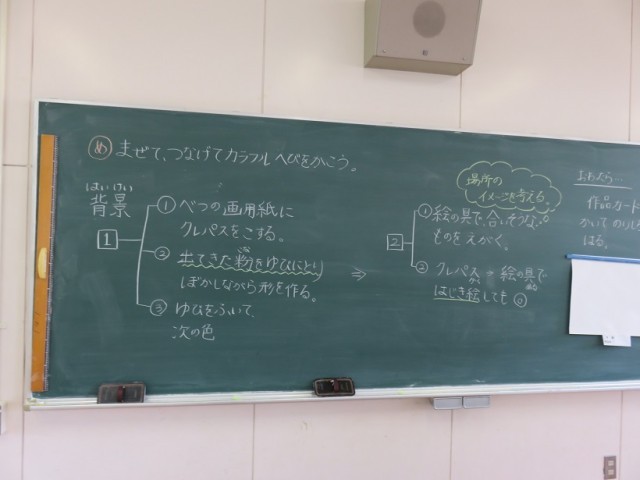 め まぜて、つなげてカラフルへびをかこう。
はいけい
背景
1
① べつの画用紙に
クレパスをこする。
② 出てきた粉をゆびにとり
ぼかしながら形を作る。
③ ゆびをふいて、
次の色
⇒
場所の
イメージを考える。
2
① 絵の具で、合いそうな
ものをえがく。
② クレパス → 絵の具で
はじき絵しても
おわったら…
作品カード
かいて のりし
はる。